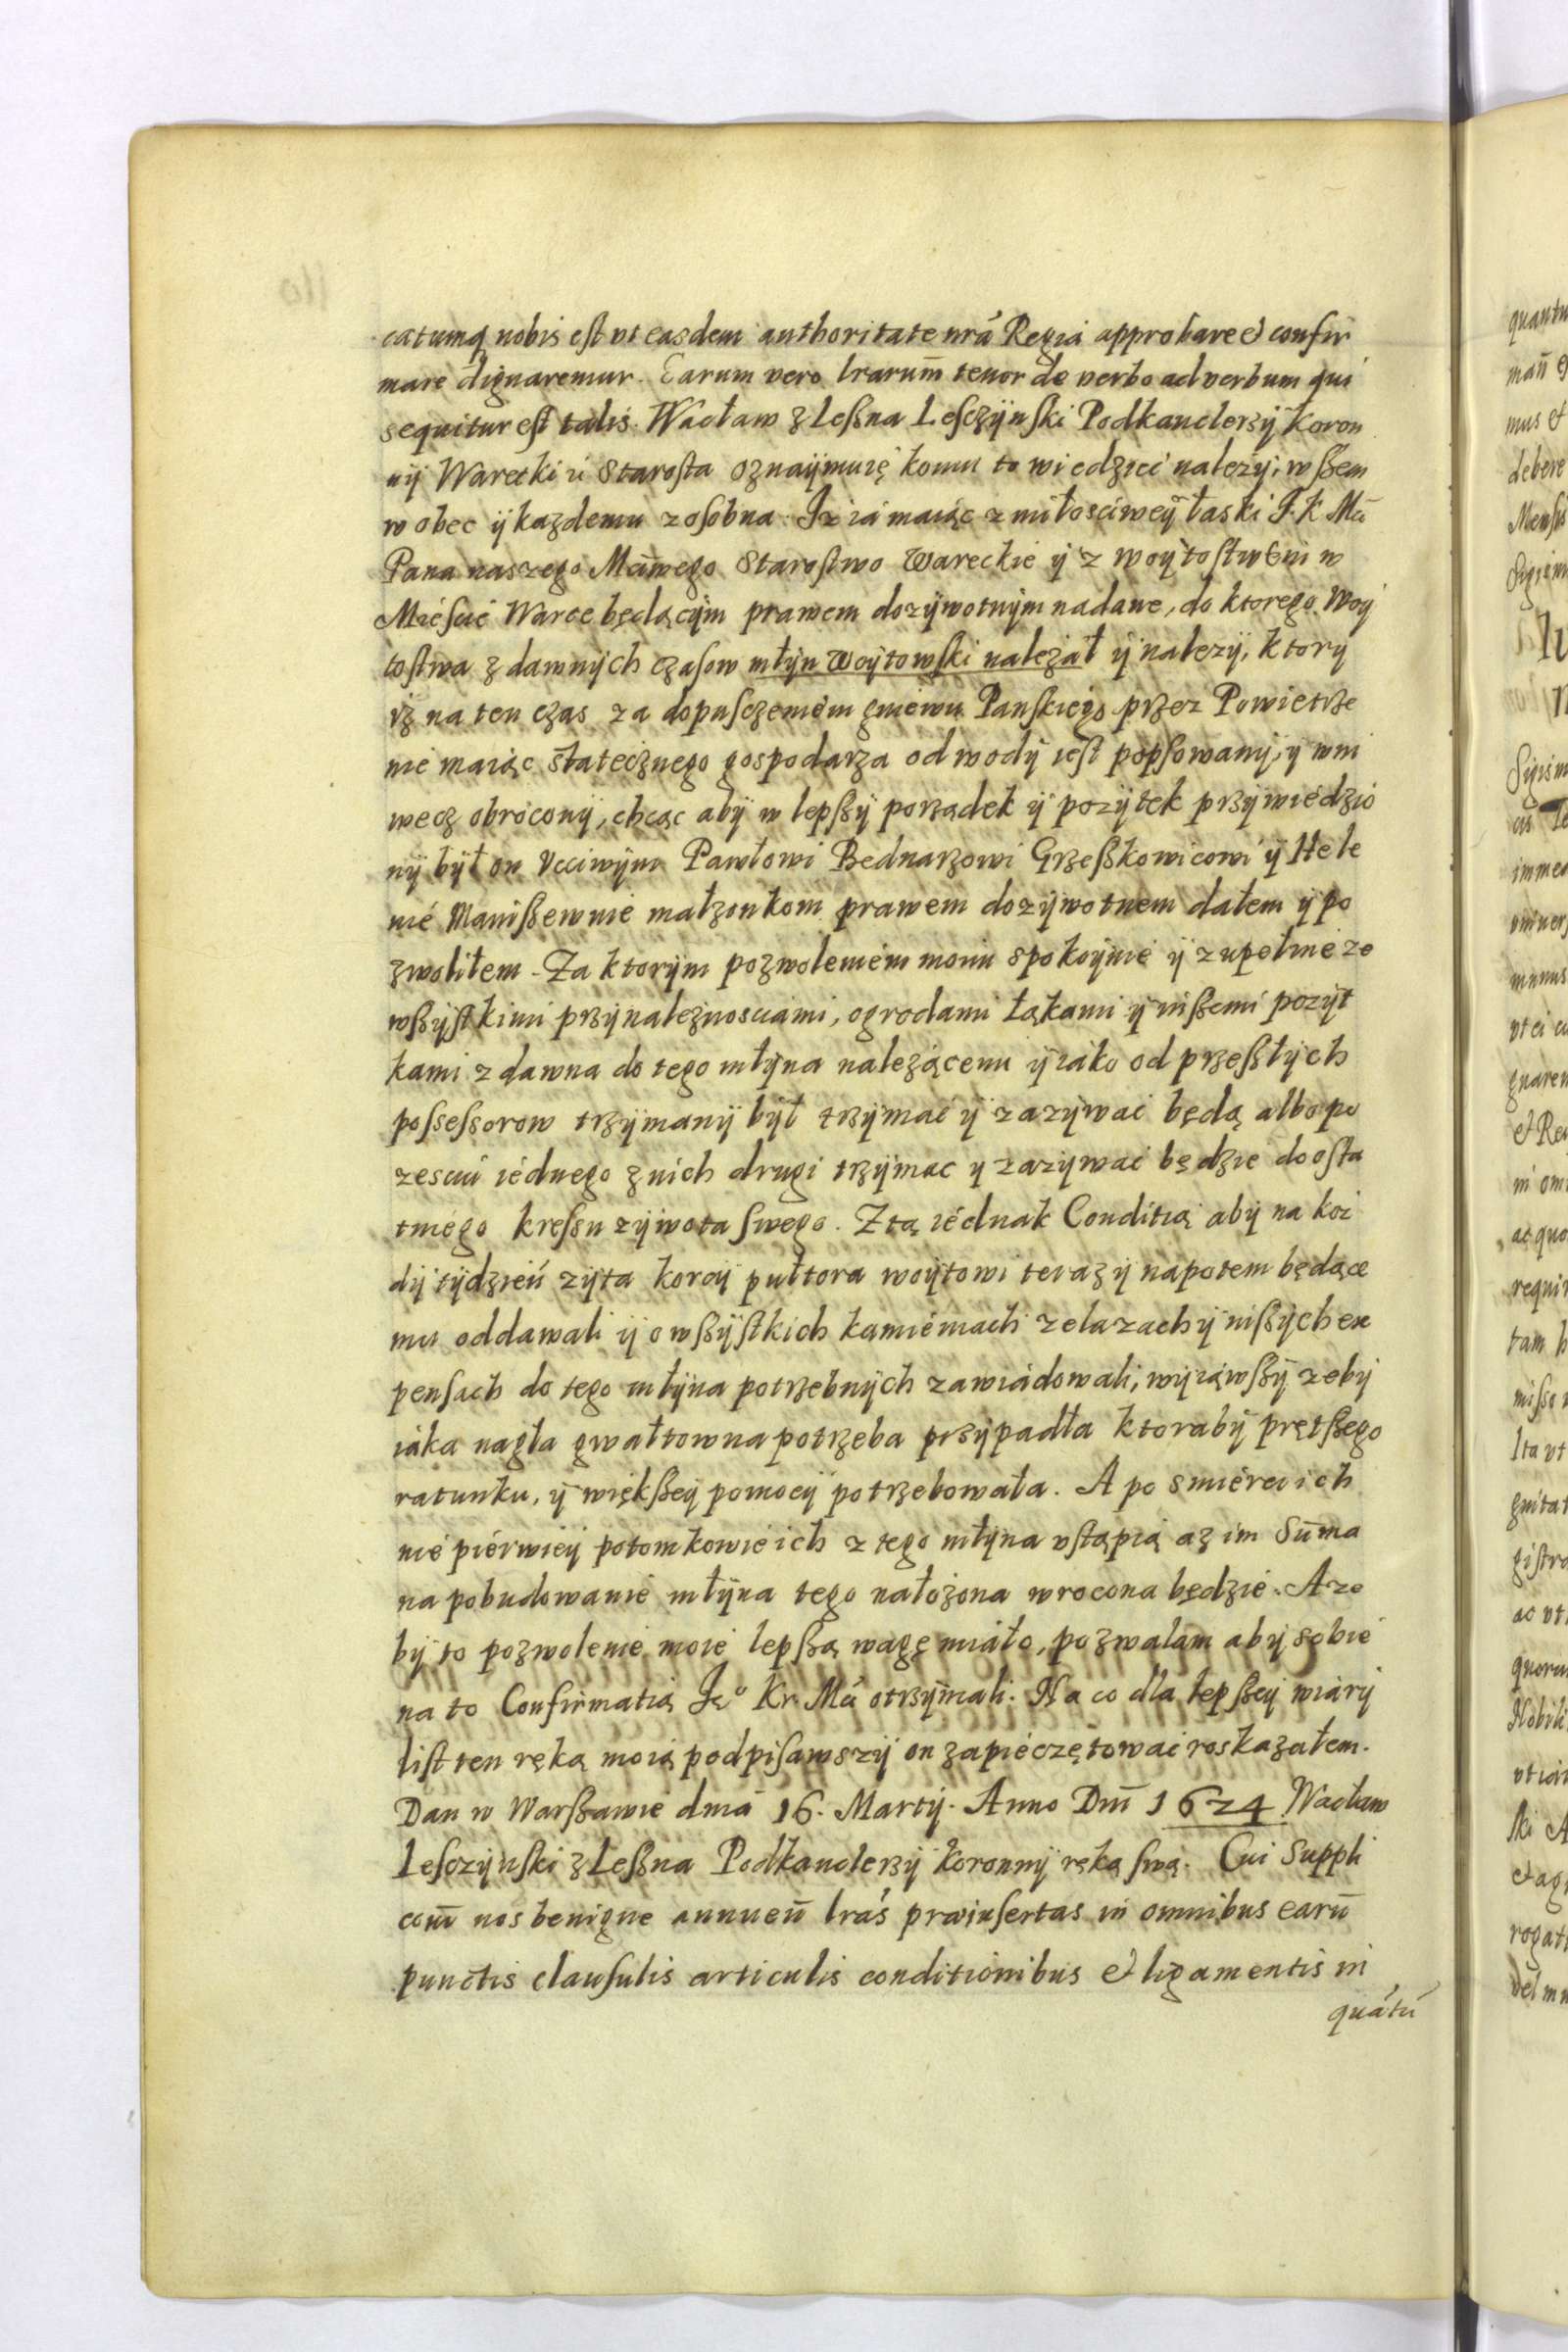 catumq nobis est vt easdem authoritate nrā Regiá approbare et confir
mare dignaremur. Earum vero lrarum̄ tenor de verbo ad verbum qui
sequitur est talis. Wacław z Leszna Lesczÿnski Podkanclerzÿ Koron
nÿ Warecki etc Starosta oznaÿmuię komu to wiedzieć nalezÿ, wszem
wobec ÿ kazdemu zosobna. Iz ia maiąc z miłosciweÿ łaski J. K. Mci
Pana naszego Mciwego Starostwo Wareckie ÿ z woÿtostwem w
Miéscie Warce będącÿm prawem dozÿwotnÿm nadane, do ktorego Woÿ
tostwa z dawnÿch czasow młÿn Woÿtowski nalezał ÿ nalezÿ, ktorÿ
iz na ten czas za dopusczeniém gniéwu Panskiégo przez Powietrze
nie maiąc statecznego gospodarza od wodÿ iest popsowanÿ, ÿ wni
wecz obroconÿ, chcąc abÿ w lepszÿ porządek ÿ pozÿtek przÿwiédzio
nÿ bÿł on Vcciwÿm Pawłowi Bednarzowi Grzeszkowicowi ÿ Hele
nié Maniszewnie małzonkom prawem dozÿwotnem dałem ÿ po
zwoliłem. Za ktorÿm pozwoleniém moim spokoÿnie ÿ zupełnié ze
wszÿstkimi przÿnaleznosciami, ogrodami łąkami ÿ inszemi pozÿt
kami z dawna do tego młÿna nalezącemi ÿ iáko od przeszłÿch
possessorow trzÿmanÿ bÿł trzÿmać ÿ zazÿwać będą albo po
zesciú iédnego z nich drugi trzÿmac ÿ zazÿwać będzie do osta
tniégo kressu zÿwota swego. Z tą iédnak Conditią abÿ na koz
dÿ tÿdzień zÿta korcÿ pułtora woÿtowi teraz ÿ napotem będące
mu oddawali ÿ o wszÿstkich kamiéniach zelazach ÿ inszÿch ex
pensach do tego młÿna potrzebnÿch zawiádowali, wÿiąwszÿ zebÿ
iáka nagła gwałtowna potrzeba przÿpadła ktorabÿ prętszego
ratunku, ÿ większeÿ pomocÿ potrzebowała. A po smiérci ich
nié piérwieÿ potomkowie ich z tego młÿna vstąpią az im Sum̄a
na pobudowanié młÿna tego nałożona wrocona będzié. A ze
bÿ to pozwolenie moié lepszą wagę miáło, pozwalam abÿ sobié
na to Confirmatią Jᵒ Kr. Mci otrzÿmali. Na co dla lepszeÿ wiárÿ
list ten ręką moią podpisawszÿ on zapiéczętować roskazałem.
Dan w Warszawié dniá 16. Martÿ. Anno Dn̄i 1624 Wacław
Lesczÿnski z Leszna Podkanclerzÿ Koronnÿ ręką swą. Cui Suppli
com̄ nos benigne annuen̄ lrás prǣinsertas in omnibus earū
punctis clausulis articulis conditionibus et ligamentis in
quátú